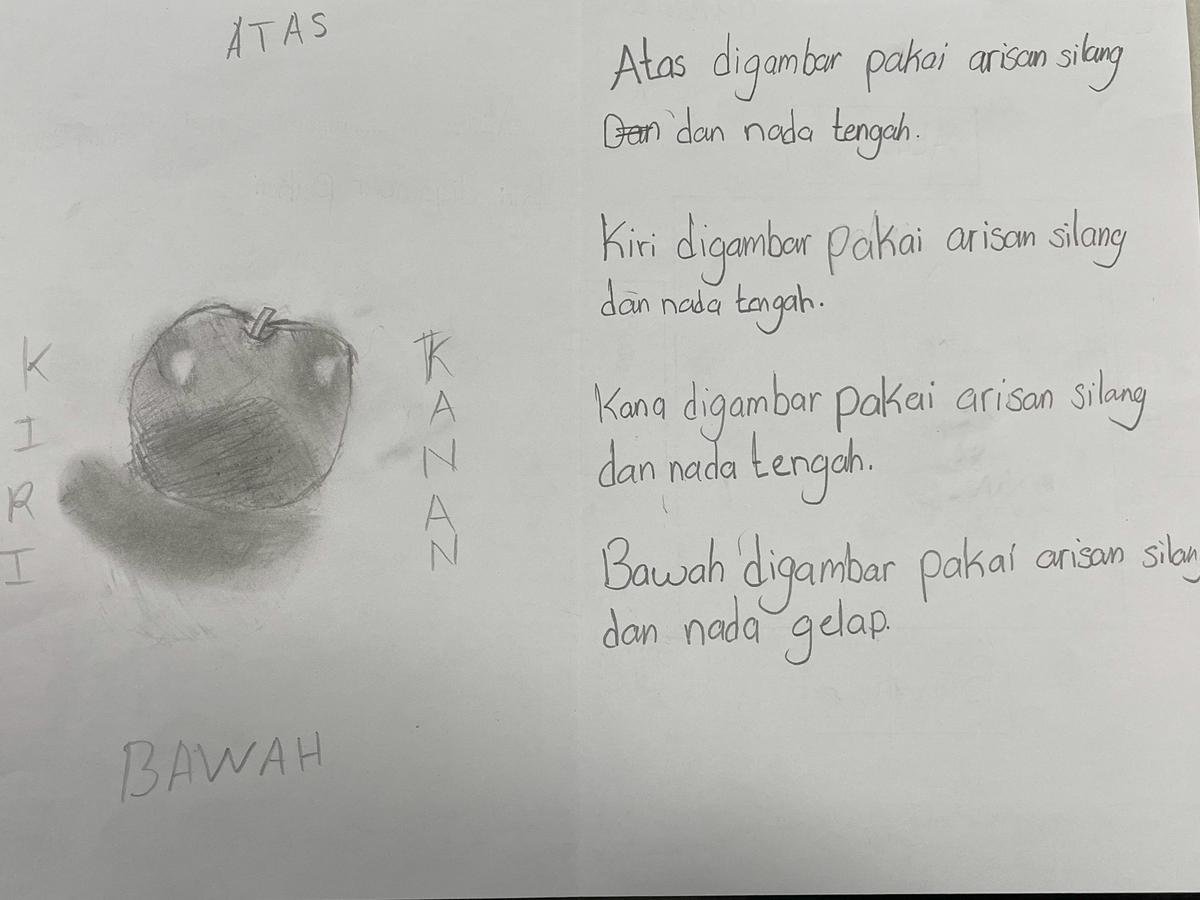 ATAS
KIRI
KANAN
BAWAH
Atas digambar pakai arisan silang
Dan dan nada tengah.
Kiri digambar pakai arisan silang
dan nada tengah.
Kana digambar pakai arisan silang
dan nada tengah.
Bawah digambar pakai arisan silang
dan nada gelap.